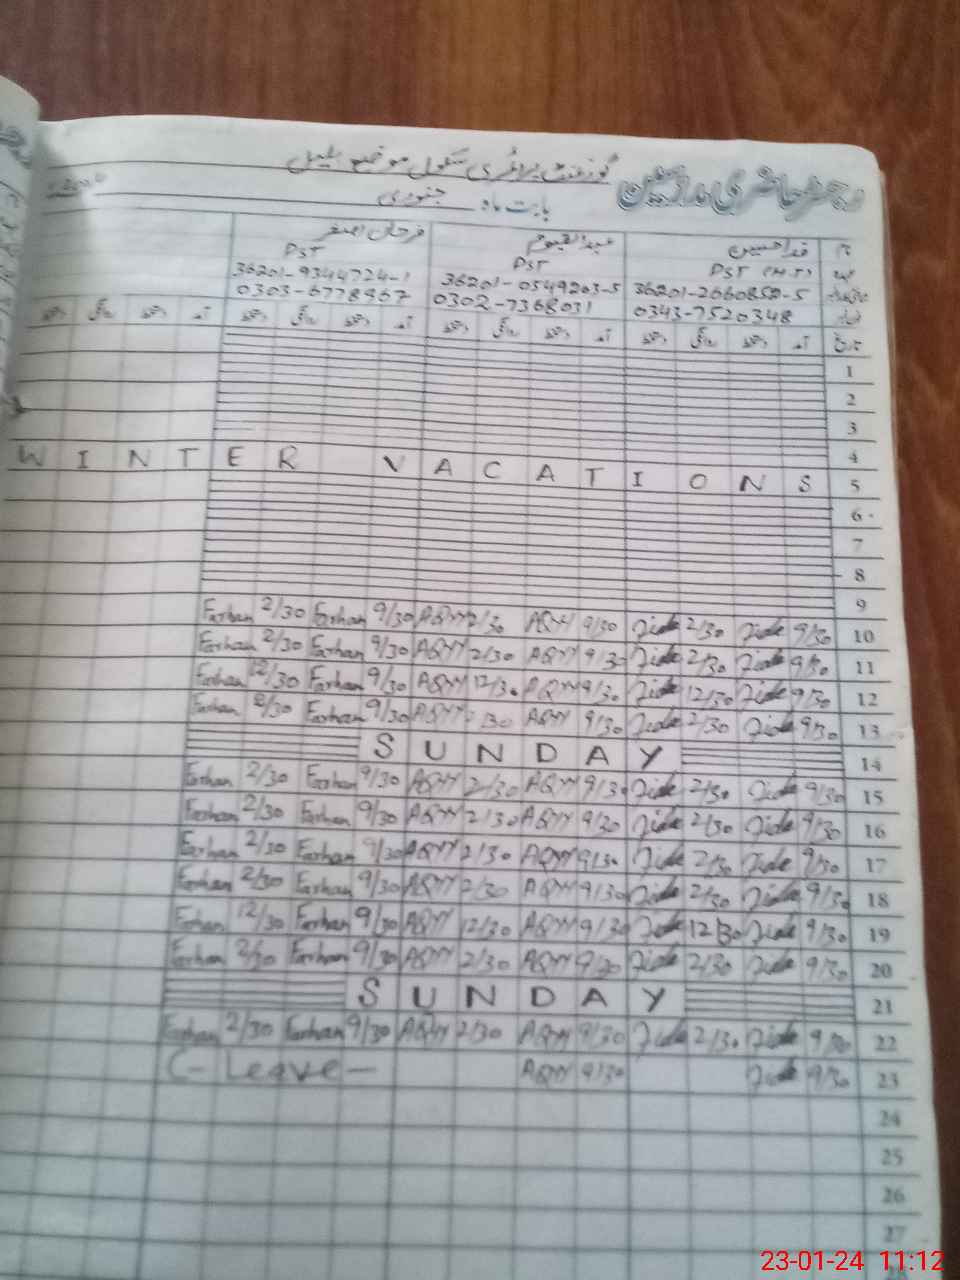 رجسٹر حاضری مدرسین
گورنمنٹ پرائمری سکول موضع
بابت ماہ جنوری
نام فدا حسین عبدالقیوم فرحان اصغر
عہدہ PST (H.T) PST PST
36201-2660852-5 36201-0549203-5 36201-9344724-1
0343-7520348 0302-7368031 0303-6778967
تاریخ آمد دستخط روانگی دستخط آمد دستخط روانگی دستخط آمد دستخط روانگی دستخط آمد دستخط روانگی دستخط
1
2
3
4
WINTER VACATIONS 5
6
7
8
9
Farhan 2/30 Farhan 9/30 AQYY 2/30 AQYY 9/30 Fida 2/30 Fida 9/30 10
Farhan 2/30 Farhan 9/30 AQYY 2/30 AQYY 9/30 Fida 2/30 Fida 9/30 11
Farhan 12/30 Farhan 9/30 AQYY 12/30 AQYY 9/30 Fida 12/30 Fida 9/30 12
Farhan 2/30 Farhan 9/30 AQYY AQYY 9/30 Fida 2/30 Fida 9/30 13
SUNDAY 14
Farhan 2/30 Farhan 9/30 AQYY 2/30 AQYY 9/30 Fida 2/30 Fida 9/30 15
Farhan 2/30 Farhan 9/30 AQYY 2/30 AQYY 9/30 Fida 2/30 Fida 9/30 16
Farhan 2/30 Farhan 9/30 AQYY 2/30 AQYY 9/30 Fida 2/30 Fida 9/30 17
Farhan 2/30 Farhan 9/30 AQYY 2/30 AQYY 9/30 Fida 2/30 Fida 9/30 18
Farhan 12/30 Farhan 9/30 AQYY 12/30 AQYY 9/30 Fida 12/30 Fida 9/30 19
Farhan 2/30 Farhan 9/30 AQYY 2/30 AQYY 9/30 Fida 2/30 Fida 9/30 20
SUNDAY 21
Farhan 2/30 Farhan 9/30 AQYY 2/30 AQYY 9/30 Fida 2/30 Fida 9/30 22
C- Leave - AQYY 9/30 Fida 9/30 23
24
25
26
27
23-01-24 11:12